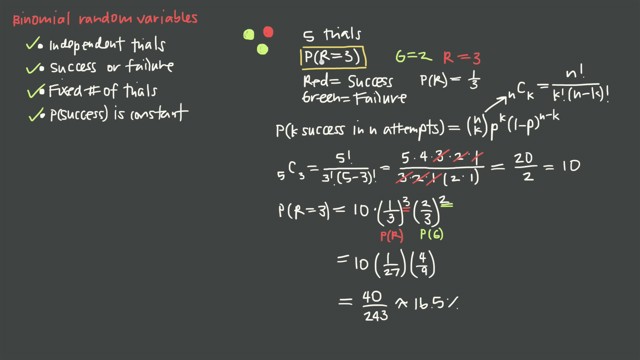 Binomial random variables
✓• Independent trials
✓• Success or failure
✓• Fixed # of trials
✓• P(success) is constant
5 trials
P(R=3) G=2 R=3
Red = Success P(R) = 1/3
Green = Failure
nCk = n! / k!(n-k)!
P(k success in n attempts) = (n k) p^k (1-p)^n-k
5C3 = 5! / 3!(5-3)! = 5·4·3·2·1 / 3·2·1(2·1) = 20/2 = 10
P(R=3) = 10·(1/3)^3 (2/3)^2
P(R) P(G)
= 10 (1/27)(4/9)
= 40/243 ≈ 16.5%